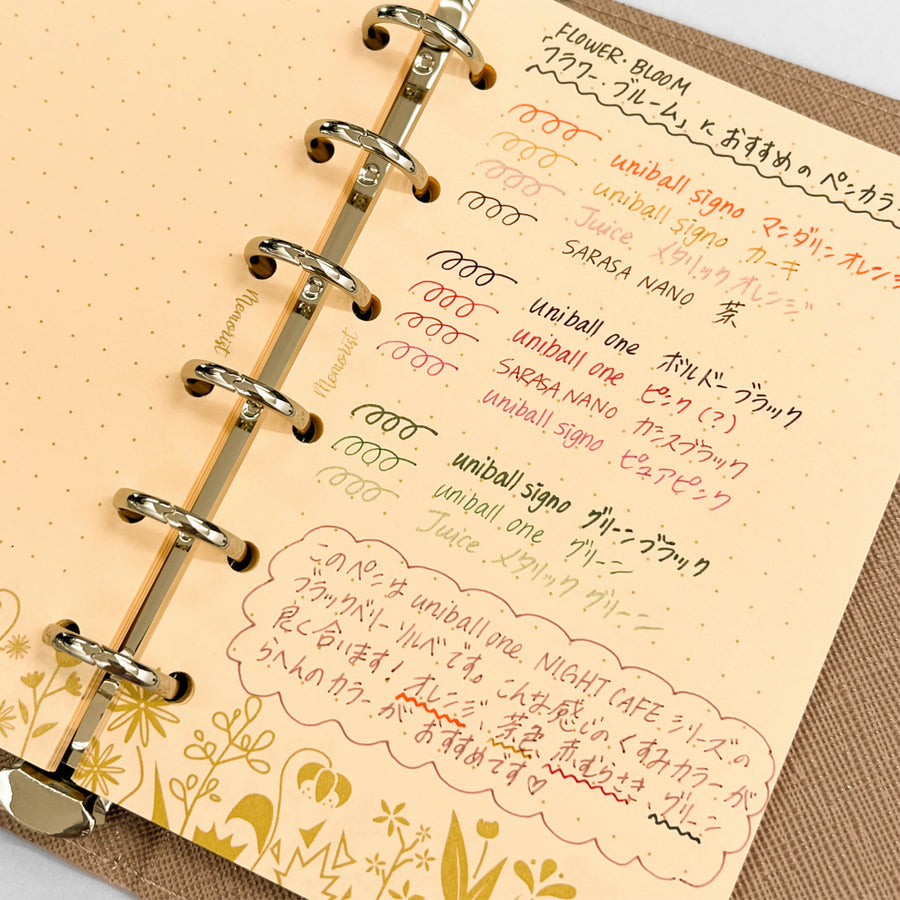 FLOWER・BLOOM
「フラワー・ブルーム」におすすめのペンカラー
uniball signo マンダリンオレンジ
uniball signo カーキ
Juice メタリックオレンジ
SARASA NANO 茶
uniball one ボルドーブラック
uniball one ピンク(?)
SARASA NANO カシスブラック
uniball signo ピュアピンク
uniball signo グリーンブラック
uniball one グリーン
Juice メタリックグリーン
このペンは uniball one NIGHT CAFEシリーズの
ブラックベリーソルベです。こんな感じのくすみカラーが
良く合います! オレンジ、茶色、赤むらさき、グリーン
らへんのカラーがおすすめです♡
Memorist
Memorist